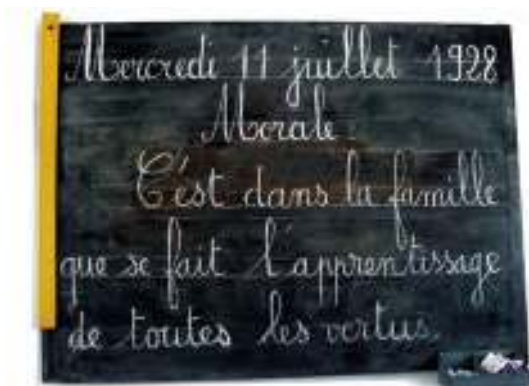 Mercredi 11 juillet 1928
Morale
C'est dans la famille
que se fait l'apprentissage
de toutes les vertus.